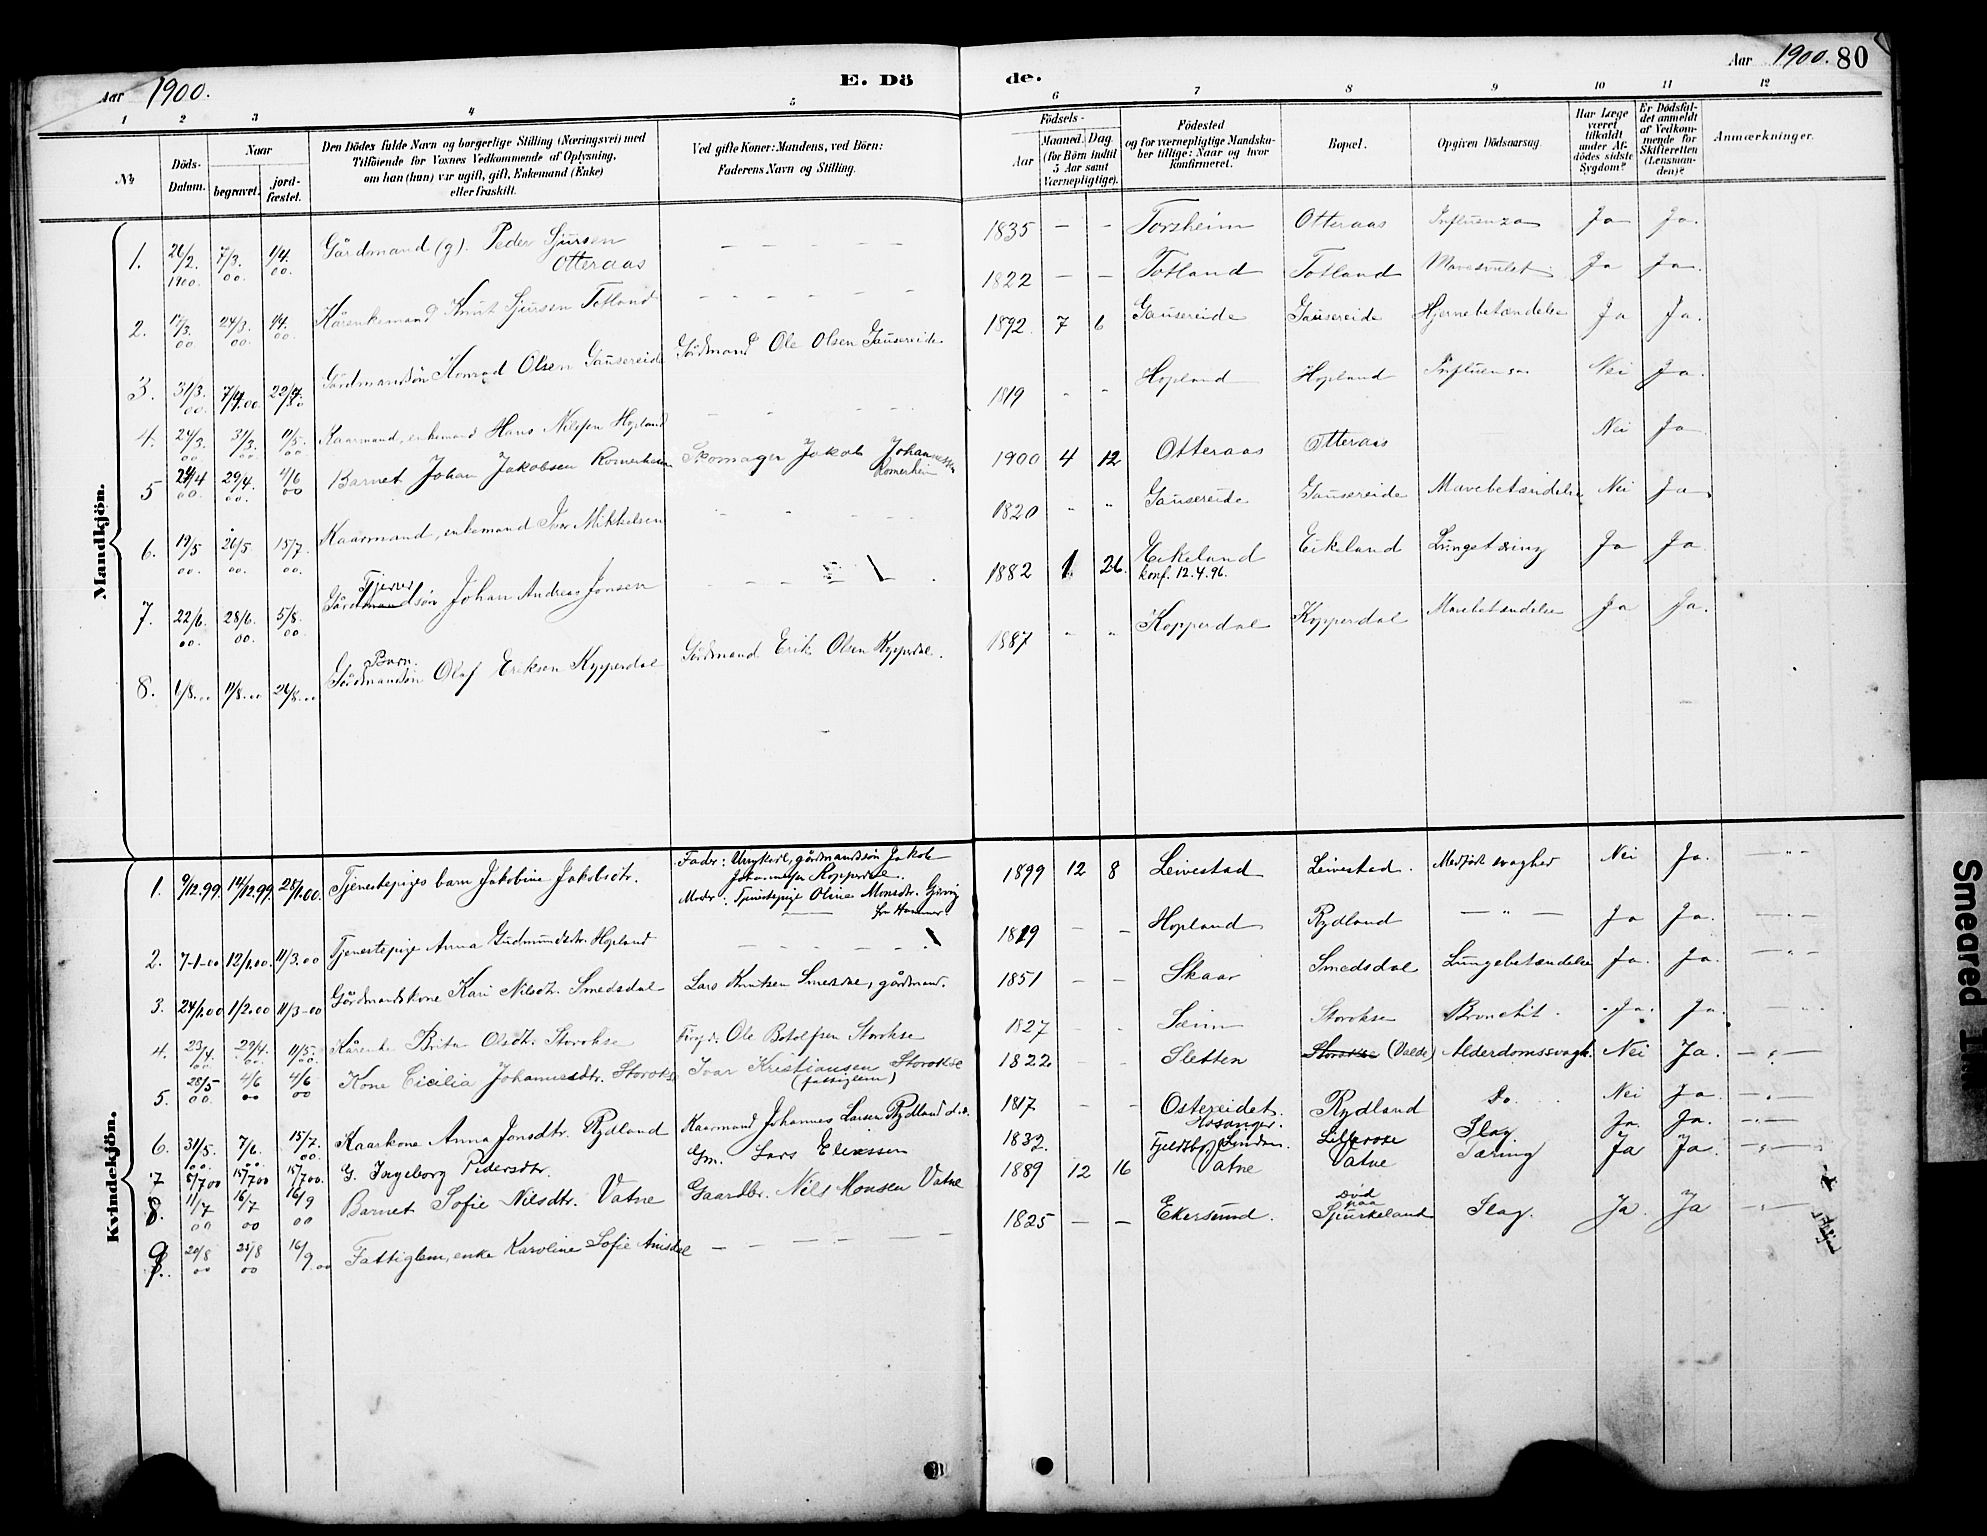 Aar 1900.
E. Dö
de.
Aar 1900. 80
1 2 3 4 5 6 7 8 9 10 11 12
№
Döds-Datum.
Naar
begravet.
jord-fæstet.
Den Dödes fulde Navn og borgerlige Stilling (Næringsvei) med
Tilföiende for Voxnes Vedkommende af Oplysning,
om han (hun) var ugift, gift, Enkemand (Enke)
eller fraskilt.
Ved gifte Koner: Mandens, ved Börn:
Faderens Navn og Stilling.
Födsels-
Aar
Maaned. Dag.
(for Börn indtil
5 Aar samt
Værnepligtige).
Födested
og for værnepligtige Mandska-
ber tillige: Naar og hvor
konfirmeret.
Bopæl.
Opgiven Dödsaarsag.
Har Læge
været
tilkaldt
under Af-
dödes sidste
Sygdom?
Er Dödsfal-
det anmeldt
af Vedkom-
mende for
Skifteretten
(Lensman-
den)?
Anmærkninger.
Mandkjön.
1. 26/2. 1900. 7/3. 00 1/4. 00. Gårdmand (g). Peder Sjursen Otteraas — — — — — 1835 — — Torsheim Otteraas Influenza Ja Ja.
2. 17/3. 00 24/3. 00. 1/4. 00. Kårenkemand Knut Sjursen Totland — — — — — 1822 — — Totland Totland Mavesvulst Ja Ja.
3. 31/3. 00. 7/4. 00 22/4. 00 Gårdmandsön Konrad Olsen Gausereide Gårdmand Ole Olsen Gausereide 1892. 7 6 Gausereide Gausereide Hjernebetændelse Ja Ja.
4. 24/3. 00 31/3. 00 11/5. 00 Kaarmand, enkemand Hans Nilssen Hopland 1819 Hopland Hopland Influensa Nei Ja.
5 24/4 00. 29/4. 00. 4/6 00 Barnet Johan Jakobsen Romerheim Skomager Jakob Johannessen Romerheim 1900 4 12 Otteraas Otteraas Nei Ja
6. 19/5 00. 26/5. 00. 15/7. 00. Kaarmand, enkemand Iver Mikkelsen 1820 " " Gausereide Gausereide Mavebetændelse Nei Ja
7. 22/6. 00. 28/6. 00. 5/8. 00 Tjener Gårdmandsön Johan Andreas Jonsen — — — 1882 1. 26. Eikeland konf. 12.4.96. Eikeland Lungetæring Ja Ja
8. 1/8.00 11/8.00 26/8.00 Barn. Gårdmandsön Olaf Eriksen Kopperdal Gårdmand Erik Olsen Kopperdal. 1887 " " Kopperdal Kopperdal Mavebetændelse Ja Ja.
Kvindekjön.
1. 9/12.99. 14/12.99. 28/1.00. Tjenestepiges barn Jakobine Jakobsdtr. Fader: Ungkarl, gårdmandssön Jakob Johannessen Kopperdal. Moder: Tjenestepige Oline Monsdtr. Gjervig fra Hammer. 1899 12 8 Leivestad Leivestad. Medfödt svaghed Nei Ja. — " —
2. 7-1-00 12/1.00. 11/3.00 Tjenestepige Anna Gudmundsdtr. Hopland — — — — 1819 — — Hopland Rydland — " — Ja Ja. — " —
3. 24/1.00 1/2.00 11/3-00 Gårdmandskone Kari Nilsdtr. Smedsdal Lars Knutsen Smedsdal, gårdmand. 1851 — — Skaar Smedsdal Lungebetændelse Ja. Ja. — " —
4. 23/4. 00 29/4. 00. 11/5. 00 Kårenke Brita Olsdtr. Storokse Ole Botolfsen Storokse 1827 - - Seim Storokse Bronchit. Ja. Ja. — " —
5. 28/5 00. 4/6 00 4/6 00 Kone Cicilia Johannesdtr. Storokse Ivar Kristiansen Storokse (fattiglem) 1822 - - Sletten Storokse (Valde) Alderdomssvagh. Nei Ja. — " —
6. 31/5. 00. 7/6. 00. 15/7. 00. Kaarkone Anna Jonsdtr. Rydland Kaarmand Johannes Larsen Rydland 1817 - - Ostereidet. Hosanger. Rydland Do. Nei Ja. — " —
7 8/7 00 15/7 00 15/7 00. G. Ingeborg Pedersdtr. Gm. Lars Eliassen 1832. Fjeldsbø, Lindaas. Lillerose Slag. Ja. Ja. — " —
8. 11/7 00 16/7 00 16/9 00 Barnet Sofie Nilsdtr. Vatne Gaardbr. Nils Monsen Vatne 1889 12 16 Vatne Vatne Tæring Ja Ja. — " —
9. 20/8 00 25/8 00 16/9.00 Fattiglem, enke Karoline Sofie Amsdal — — — — — — 1825 — — Ekersund. Död paa Spurkeland Slag. Ja. Ja — " —
Smeared